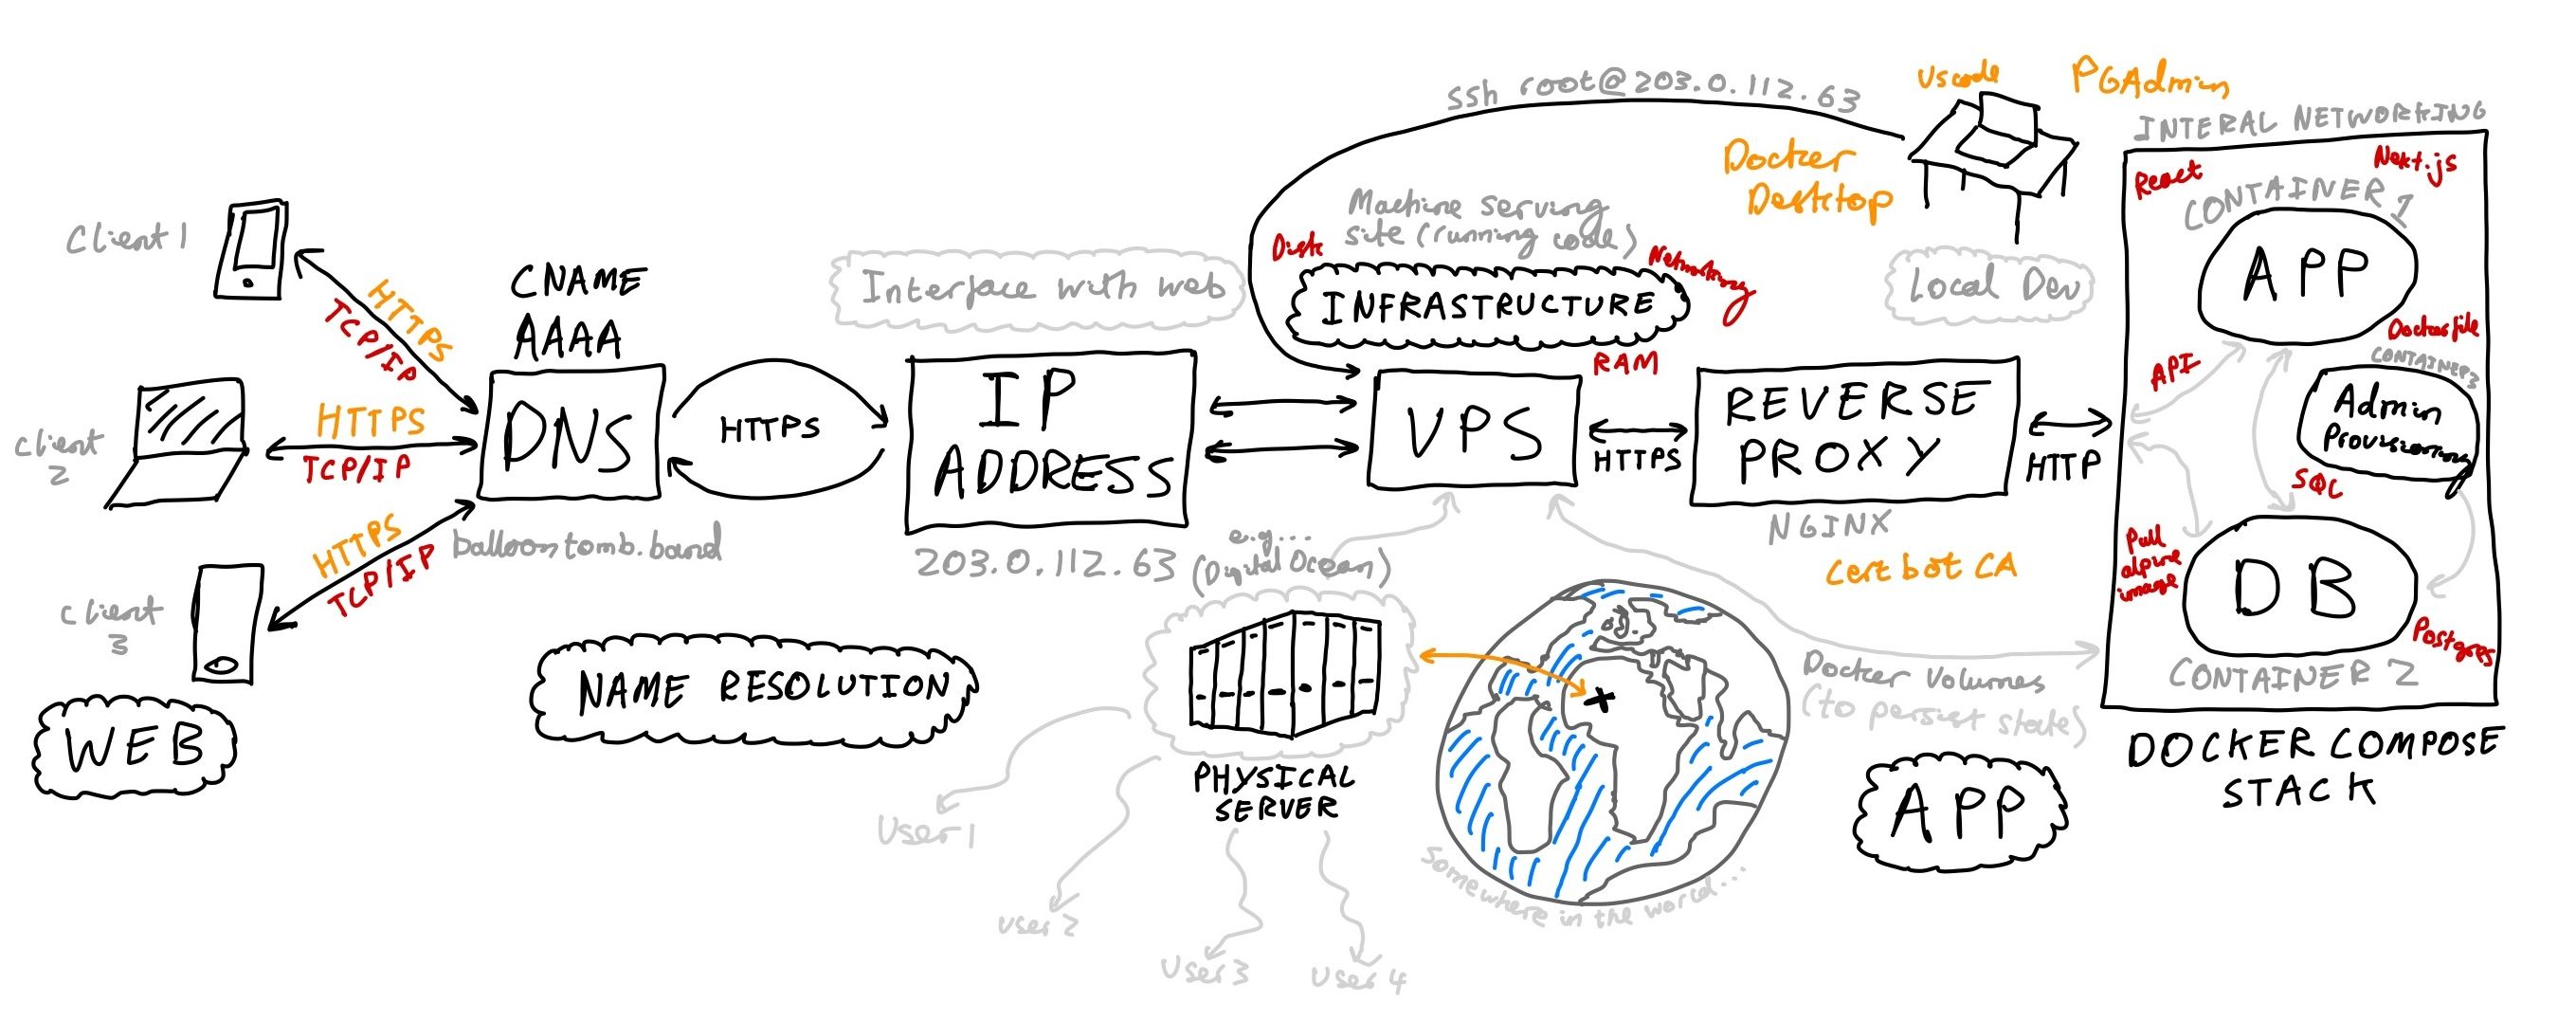 Client 1
HTTPS
TCP/IP
Client
2
HTTPS
TCP/IP
Client
3
HTTPS
TCP/IP
WEB
CNAME
AAAA
DNS
balloontomb.band
NAME RESOLUTION
HTTPS
Interface with web
IP
ADDRESS
203.0.112.63
e.g...
(Digital Ocean)
PHYSICAL
SERVER
User 1
User 2
User 3
User 4
ssh root@203.0.112.63
Machine serving
site (running code)
Disk
Networking
INFRASTRUCTURE
RAM
VPS
HTTPS
Somewhere in the world...
Vscode
PGAdmin
Docker
Desktop
Local Dev
REVERSE
PROXY
NGINX
certbot CA
HTTP
Docker Volumes
(to persist state)
APP
INTERAL NETWORKING
React
Next.js
CONTAINER 1
APP
Dockerfile
CONTAINER 3
API
Admin
Provisioning
SQL
Pull
alpine
image
DB
Postgres
CONTAINER 2
DOCKER COMPOSE
STACK